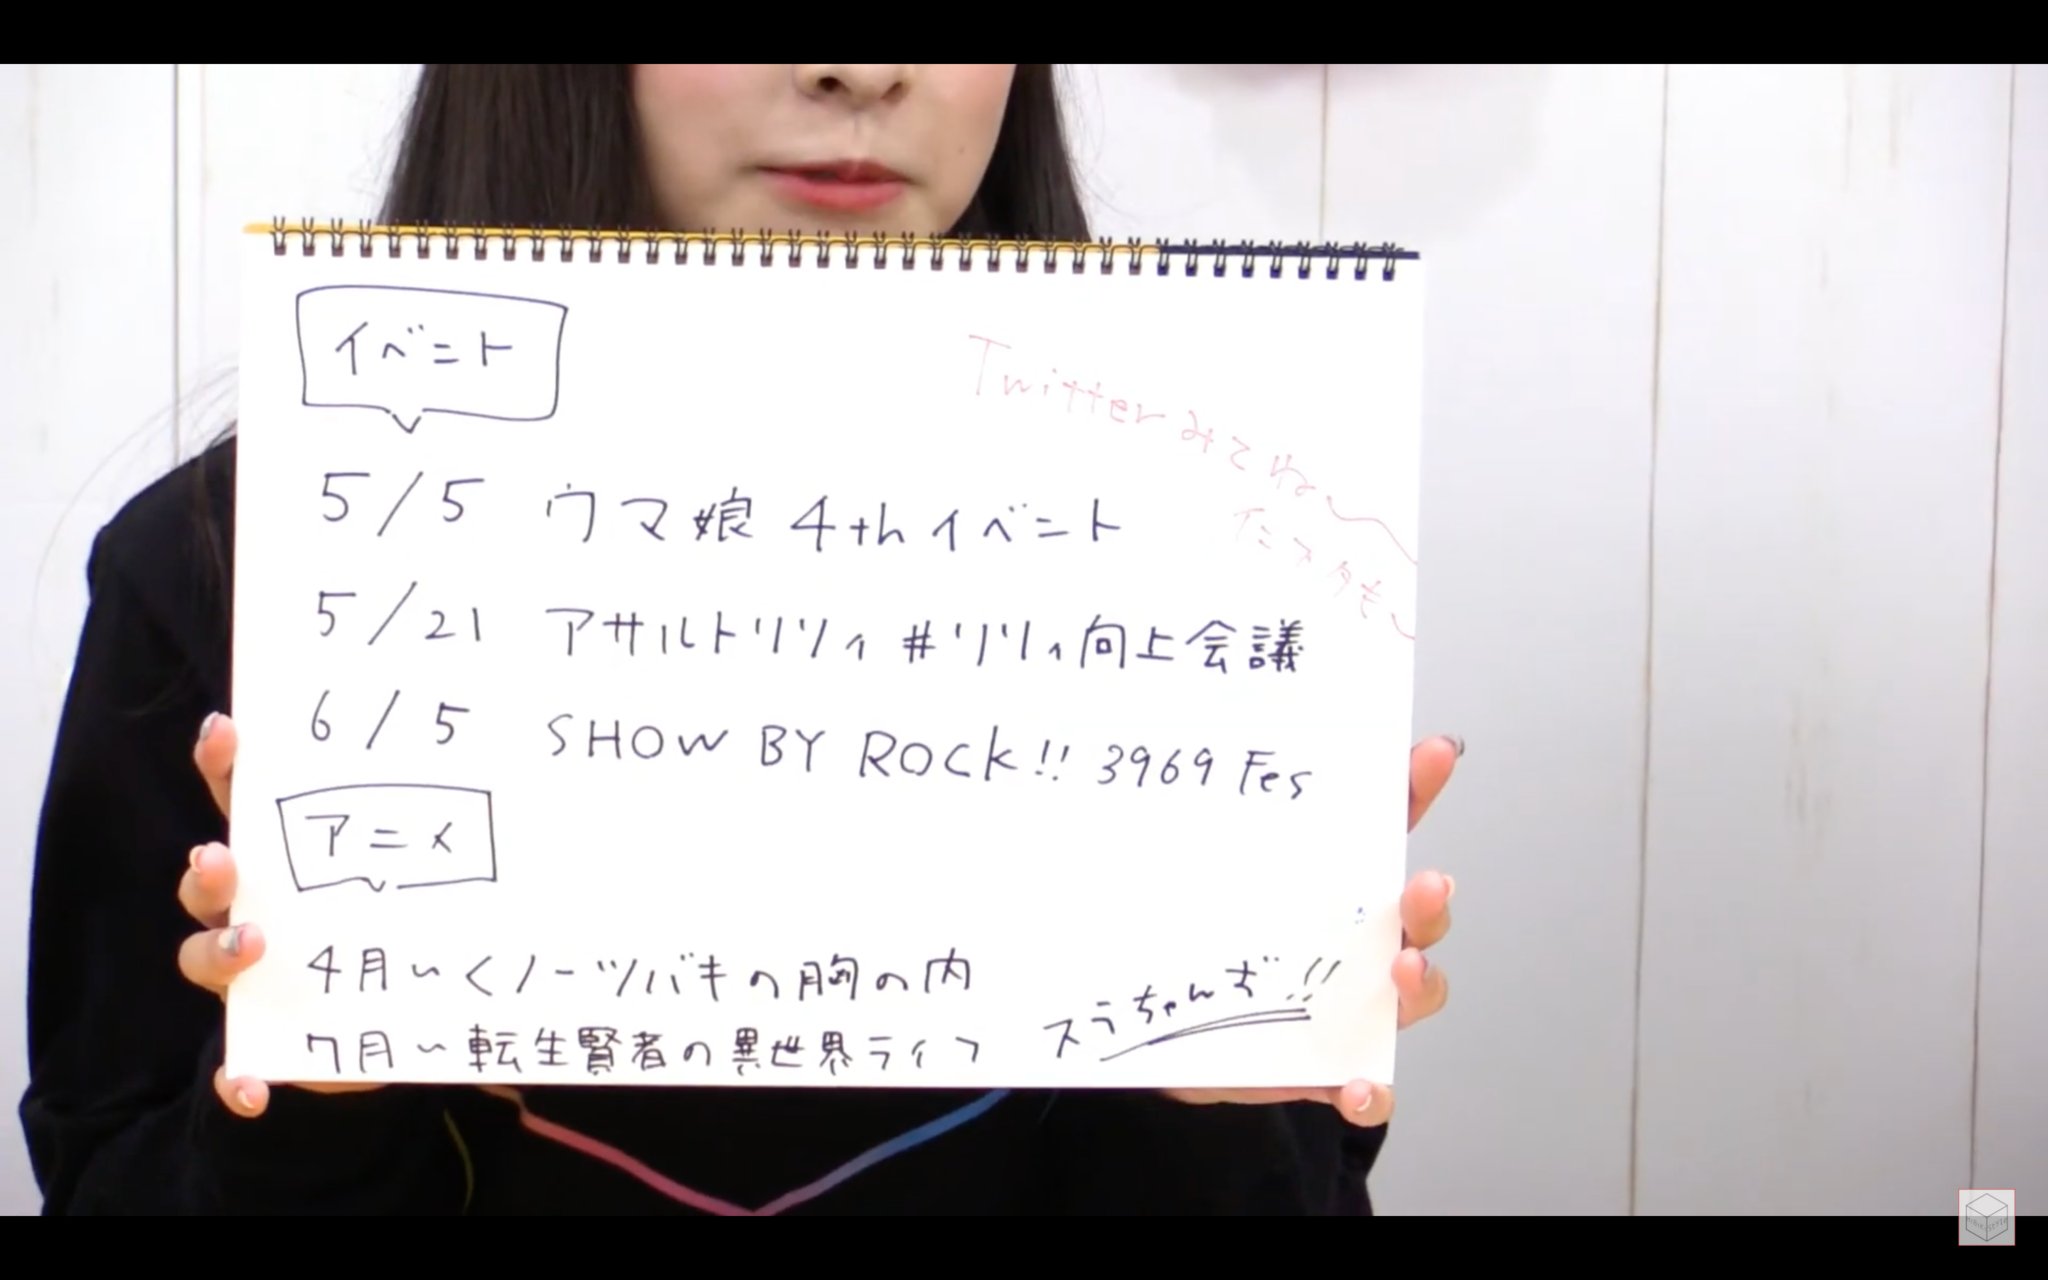 イベント
Twitterみてね〜
インスタも〜
5/5 ウマ娘 4thイベント
5/21 アサルトリリィ #リリィ向上会議
6/5 SHOW BY ROCK!! 3969 Fes
アニメ
4月〜くノ一ツバキの胸の内
7月〜転生賢者の異世界ライフ
スラちゃんず!!